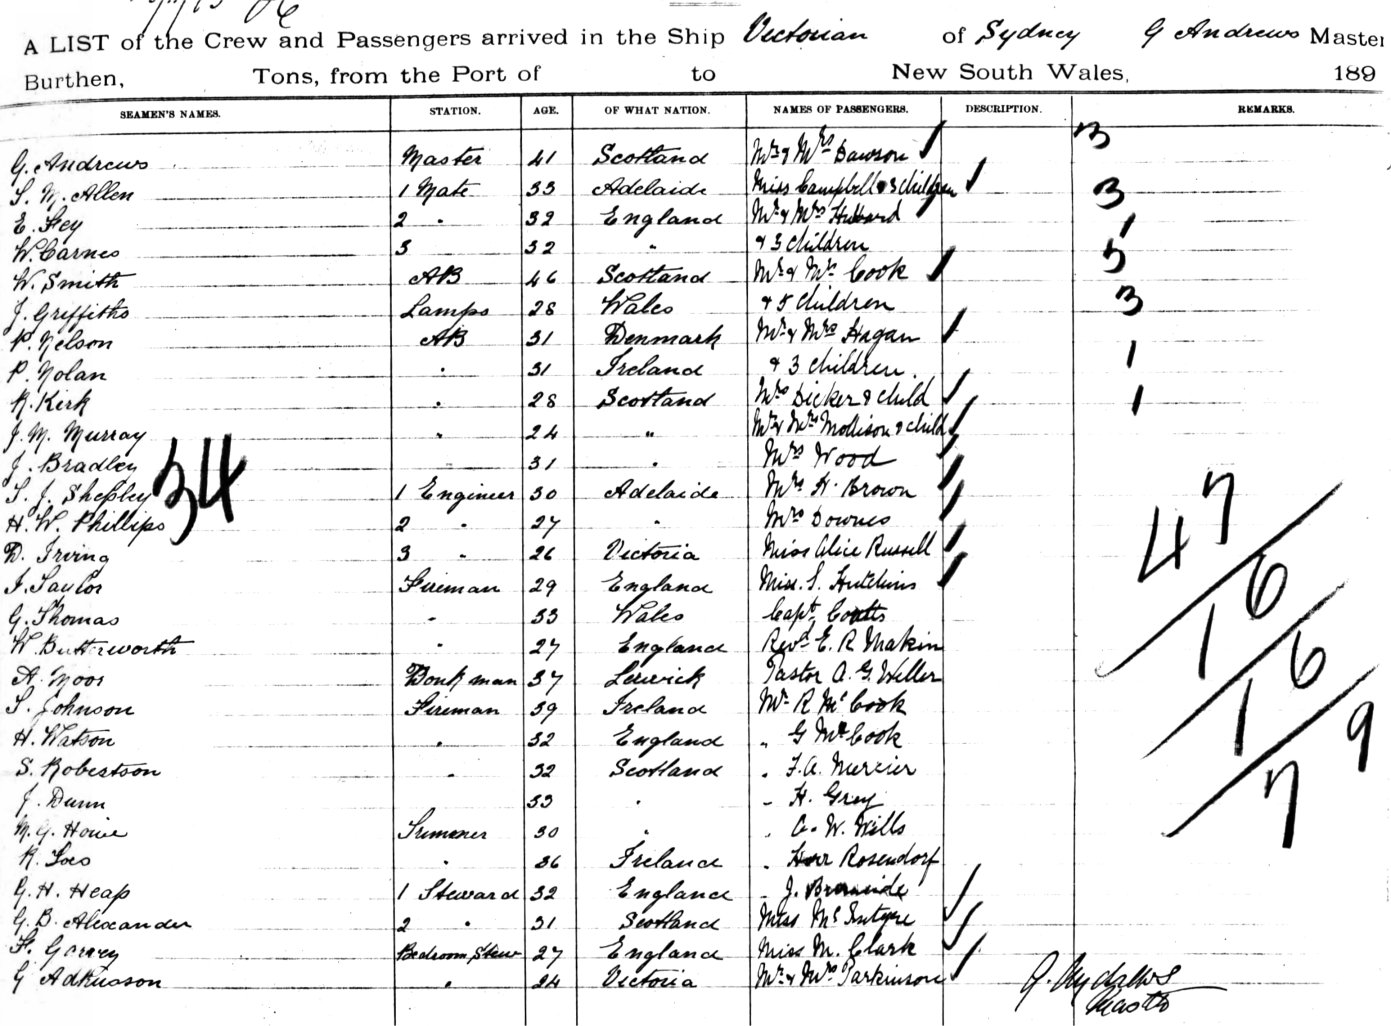 A LIST of the Crew and Passengers arrived in the Ship Victorian of Sydney G Andrews Master
Burthen, Tons, from the Port of to New South Wales, 189
SEAMEN'S NAMES. STATION. AGE. OF WHAT NATION. NAMES OF PASSENGERS. DESCRIPTION. REMARKS.
G. Andrews Master 41 Scotland Mr & Mrs Dawson 3
S. W. Allen 1 Mate 33 Adelaide Miss Campbell & 3 children 3
E. Fey 2 " 32 England Mr & Mrs Hubbard 1
W. Carnes 3 32 " & 3 children 5
W. Smith AB 46 Scotland Mr & Mrs Cook
J. Griffiths Lamps 28 Wales & 5 children 3
P. Nelson AB 31 Denmark Mr & Mrs Hagan
P. Nolan " 31 Ireland & 3 children 1
R. Kirk " 28 Scotland Mrs Dicker & child 1
J. M. Murray " 24 " Mr & Mrs Mollison & child
J. Bradley 31 " Mrs Wood
34
S. J. Shepley 1 Engineer 30 Adelaide Mrs H. Brown 47
H. W. Phillips 2 " 27 " Mrs Downes
D. Irving 3 " 26 Victoria Miss Alice Russell 16
J. Taylor Fireman 29 England Miss. S. Hutchins
G. Thomas " 33 Wales Capt. Coutts
W. Butterworth " 27 England Revd E. R Makin 16
A. Moos Donkman 37 Lerwick Pastor A. G. Weller
S. Johnson Fireman 39 Ireland Mr R McCook
H. Watson " 32 England " G McCook 79
S. Robertson " 32 Scotland " F. A. Mercier
J. Dunn 33 " " H. Grey
M. G. Howie Trimmer 30 " " A. W. Wills
R. " 36 Ireland " Herr Rosendorf
G. H. Heap 1 Steward 32 England " J.
G. B. Alexander 2 " 31 Scotland Miss McIntyre
F. Garvey Bedroom Stew 27 England Miss M. Clark
G Adkusson " 24 Victoria Mr & Mrs Parkinson
G. Andrews
Master